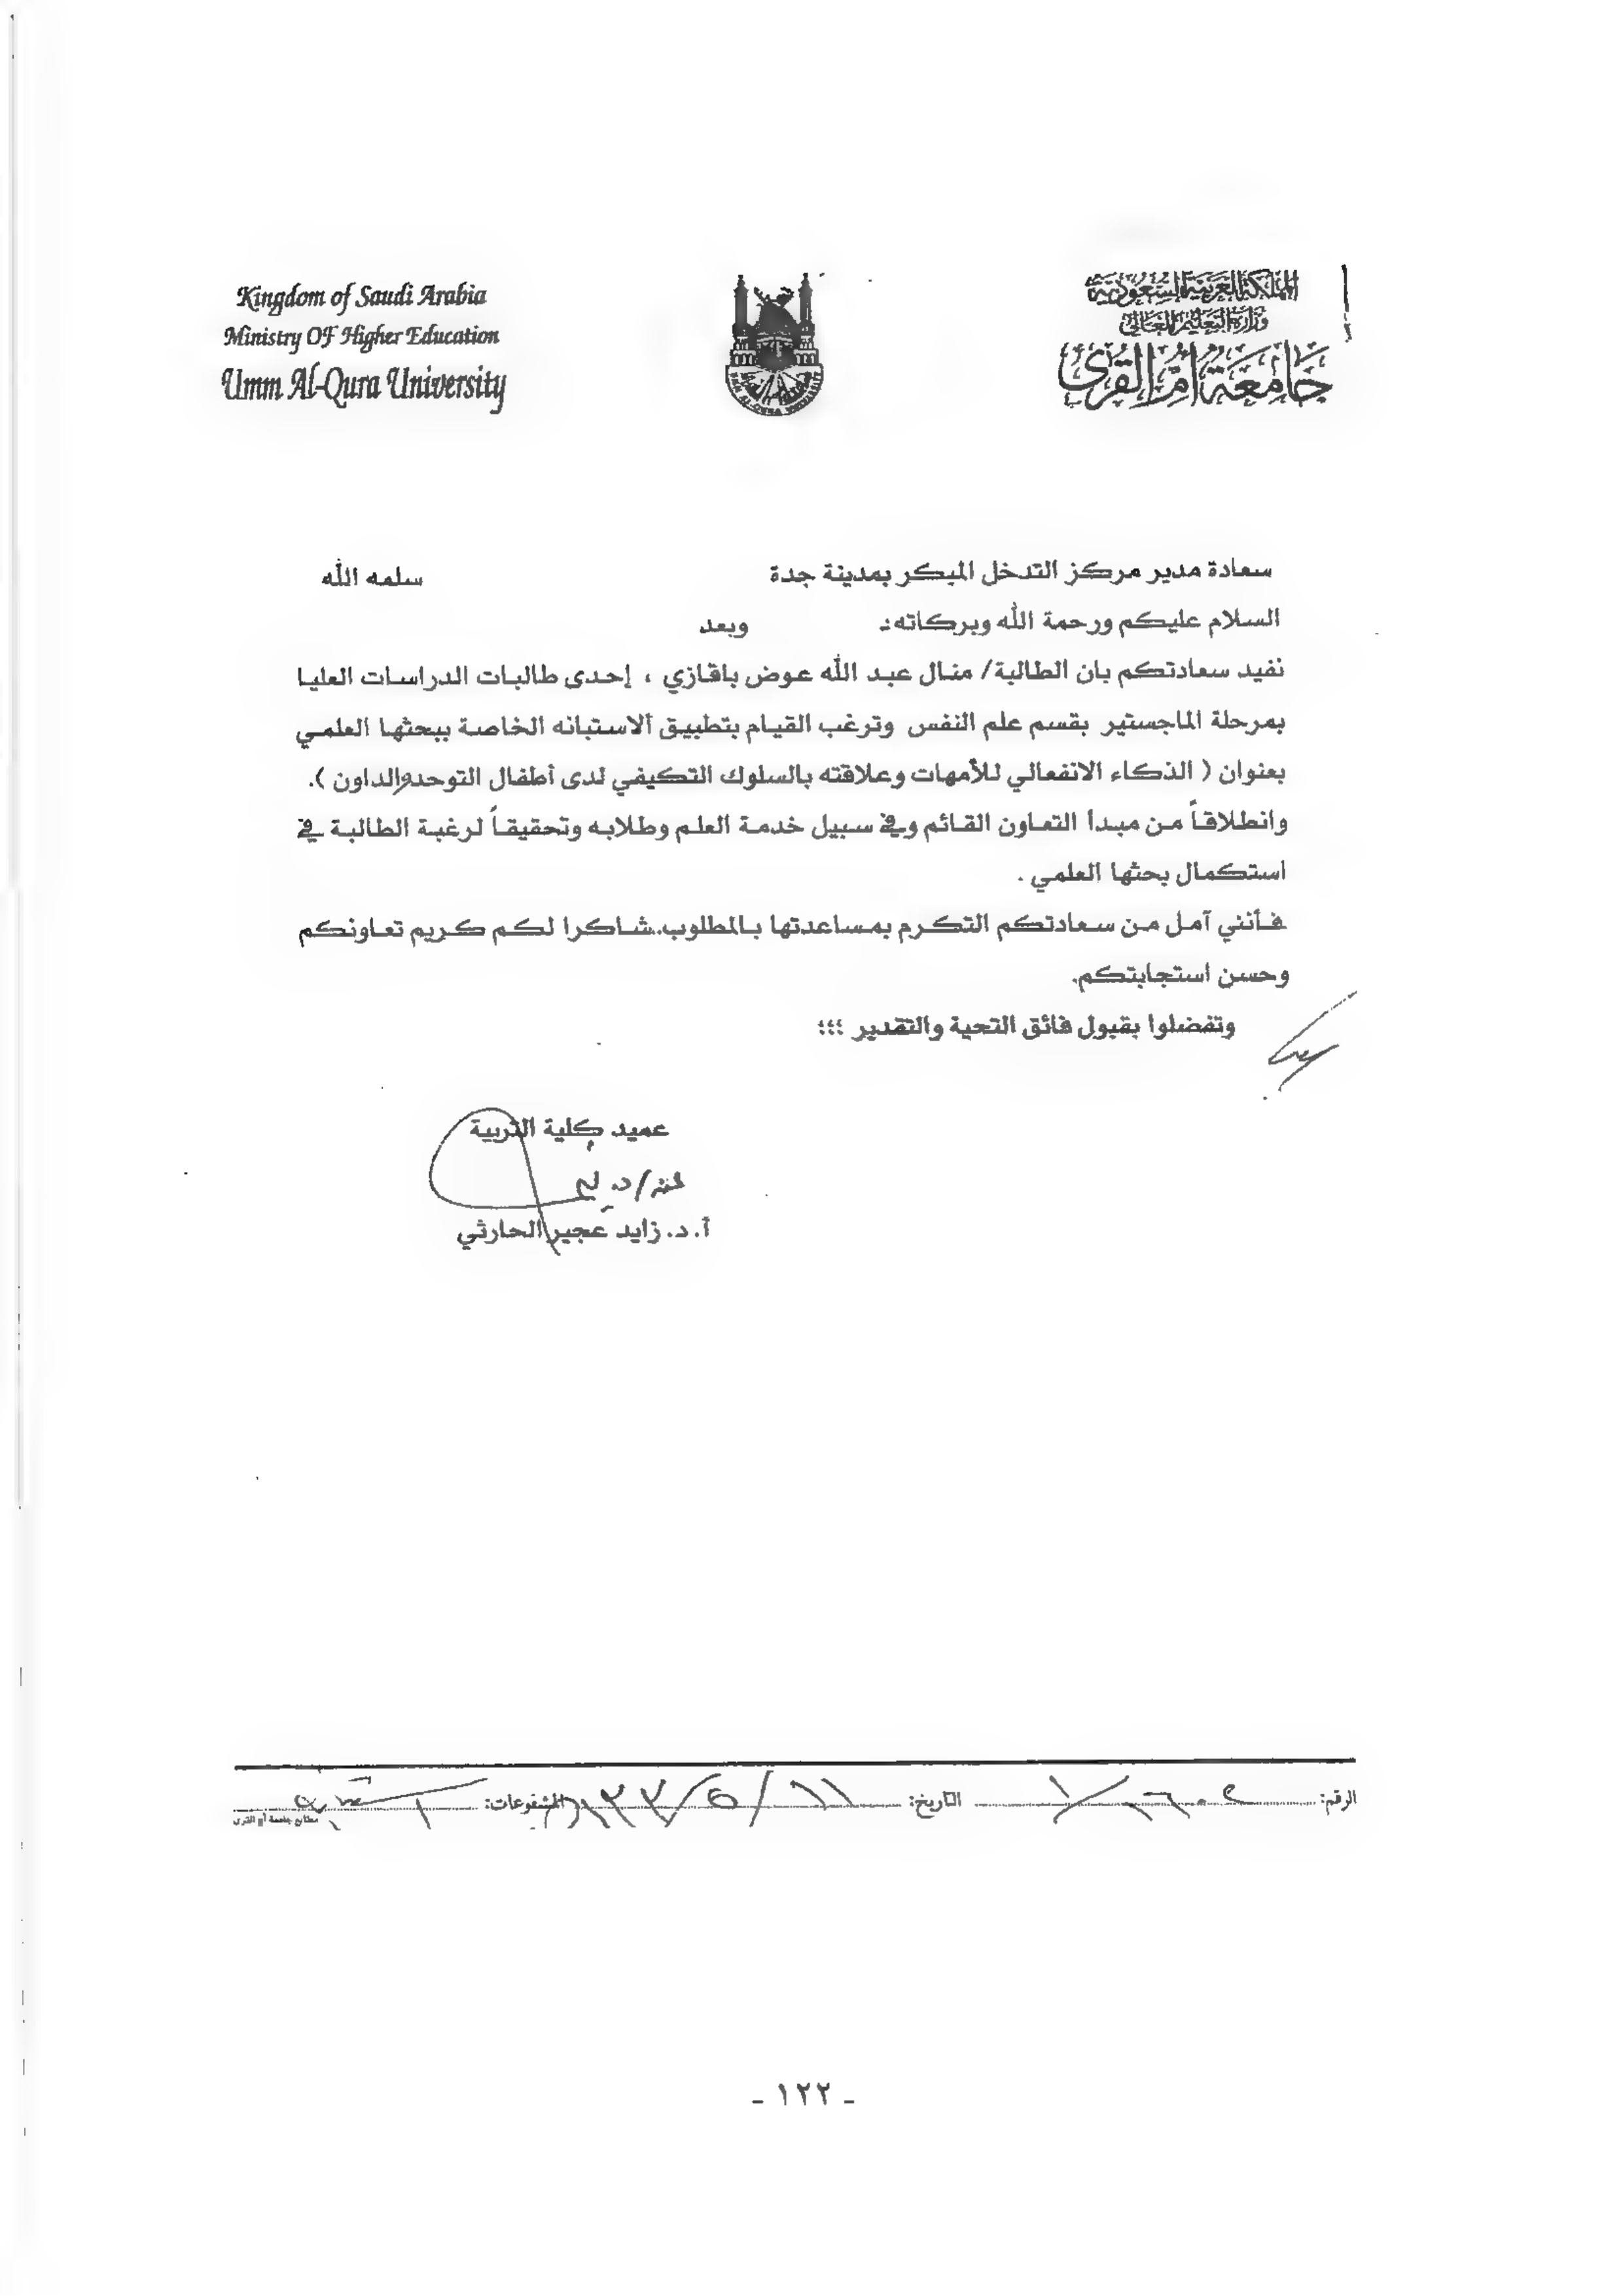 المملكة العربية السعودية
وزارة التعليم العالي
جامعة أم القرى
Kingdom of Saudi Arabia
Ministry OF Higher Education
Umm Al-Qura University
سعادة مدير مركز التدخل المبكر بمدينة جدة سلمه الله
السلام عليكم ورحمة الله وبركاته:ـ وبعد
نفيد سعادتكم بان الطالبة/ منال عبد الله عوض باقازي ، إحدى طالبات الدراسات العليا
بمرحلة الماجستير بقسم علم النفس وترغب القيام بتطبيق ألاستبانه الخاصة ببحثها العلمي
بعنوان ( الذكاء الانفعالي للأمهات وعلاقته بالسلوك التكيفي لدى أطفال التوحد والداون ).
وانطلاقاً من مبدأ التعاون القائم وفي سبيل خدمة العلم وطلابه وتحقيقاً لرغبة الطالبة في
استكمال بحثها العلمي .
فأنني آمل من سعادتكم التكرم بمساعدتها بالمطلوب..شاكرا لكم كريم تعاونكم
وحسن استجابتكم.
وتفضلوا بقبول فائق التحية والتقدير ؛؛؛
عميد كلية التربية
أ.د. زايد عجير الحارثي
الرقم: التاريخ: المشفوعات:
مطابع جامعة أم القرى
- ١٢٢ -